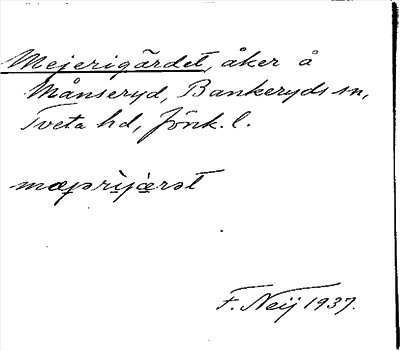 Mejerigärdet, åker å
Månseryd, Bankeryds sn,
Tveta hd, Jönk. l.
F. Neij 1937.